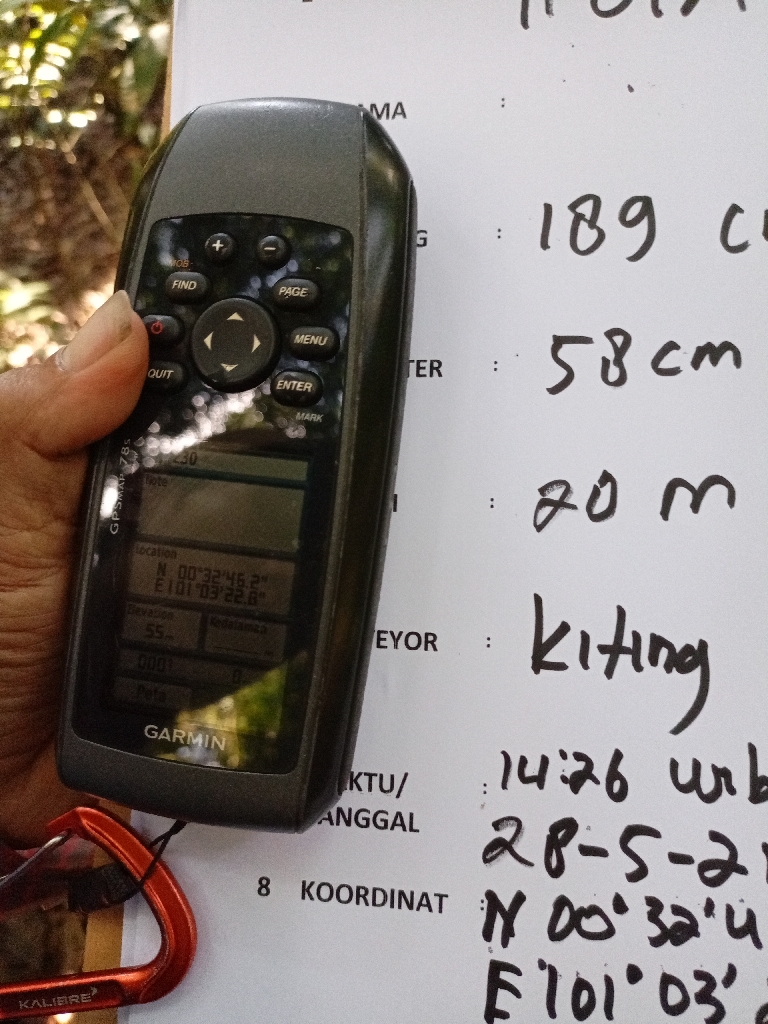 AMA :
G : 189 c
TER : 58 cm
I : 20 m
EYOR : Kiting
KTU/ : 14:26 wib
ANGGAL 28-5-2
8 KOORDINAT : N 00°32'4
E 101°03'
+ -
FIND PAGE
MENU
QUIT ENTER
MARK
GPSMAP 78s
230
Note
Location
N 00°32'46.2"
E101°03'22.8"
Elevasion
55 m
Kedalaman
0001 0
Peta
GARMIN
KALIBRE